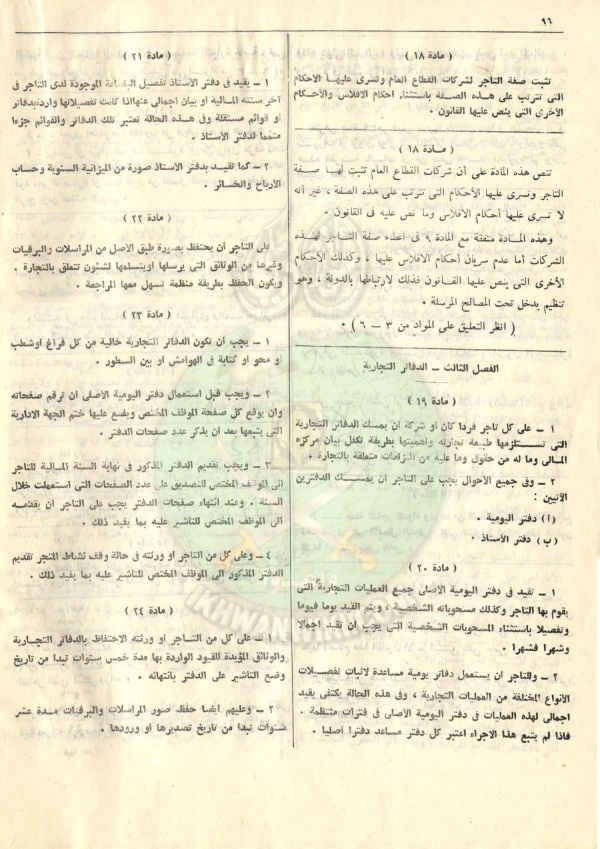 ٩٦
( مادة ١٨ )
تثبت صفة التاجر لشركات القطاع العام وتسرى عليها الأحكام
التى تترتب على هذه الصفة باستثناء أحكام الافلاس والأحكام
الأخرى التى ينص عليها القانون .
( مادة ١٨ )
تنص هذه المادة على أن شركات القطاع العام تثبت لها صفة
التاجر وتسرى عليها الأحكام التى تترتب على هذه الصفة ، غير أنه
لا تسرى عليها أحكام الافلاس وما نص عليه فى القانون .
وهذه المادة متفقة مع المادة ٩ فى اعطاء صفة التاجر لهذه
الشركات أما عدم سريان أحكام الافلاس عليها ، وكذلك الأحكام
الأخرى التى ينص عليها القانون فذلك لارتباطها بالدولة ، وهو
تنظيم يدخل تحت المصالح المرسلة .
( انظر التعليق على المواد من ٣ – ٦ ) .
الفصل الثالث – الدفاتر التجارية
( مادة ١٩ )
١ – على كل تاجر فردا كان أو شركة ان يمسك الدفاتر التجارية
التى تستلزمها طبيعة تجارته وأهميتها بطريقة تكفل بيان مركزه
المالى وما له من حقوق وما عليه من التزامات متعلقة بالتجارة .
٢ – وفى جميع الأحوال يجب على التاجر ان يمسك الدفترين
الآتيين :
(ا) دفتر اليومية .
(ب) دفتر الأستاذ .
( مادة ٢٠ )
١ – تقيد فى دفتر اليومية الأصلى جميع العمليات التجارية التى
يقوم بها التاجر وكذلك مسحوباته الشخصية ، ويتم القيد يوما فيوما
وتفصيلا باستثناء المسحوبات الشخصية التى يجب ان تقيد اجمالا
وشهرا فشهرا .
٢ – وللتاجر ان يستعمل دفاتر يومية مساعدة لاثبات تفصيلات
الأنواع المختلفة من العمليات التجارية ، وفى هذه الحالة يكتفى بقيد
اجمالى لهذه العمليات فى دفتر اليومية الأصلى فى فترات منتظمة .
فاذا لم يتبع هذا الاجراء اعتبر كل دفتر مساعد دفترا أصليا .
( مادة ٢١ )
١ – يقيد فى دفتر الأستاذ تفصيل البضاعة الموجودة لدى التاجر فى
آخر سنته المالية أو بيان اجمالى عنها اذا كانت تفصيلاتها واردة بدفاتر
أو قوائم مستقلة وفى هذه الحالة تعتبر تلك الدفاتر والقوائم جزءا
متمما لدفتر الأستاذ .
٢ – كما تقيد بدفتر الأستاذ صورة من الميزانية السنوية وحساب
الأرباح والخسائر .
( مادة ٢٢ )
على التاجر ان يحتفظ بصورة طبق الأصل من المراسلات والبرقيات
وغيرها من الوثائق التى يرسلها أو يتسلمها لشئون تتعلق بالتجارة .
ويكون الحفظ بطريقة منظمة تسهل معها المراجعة .
( مادة ٢٣ )
١ – يجب ان تكون الدفاتر التجارية خالية من كل فراغ أو شطب
أو محو أو كتابة فى الهوامش أو بين السطور .
٢ – ويجب قبل استعمال دفتر اليومية الأصلى ان ترقم صفحاته
وان يوقع كل صفحة الموظف المختص ويضع عليها ختم الجهة الادارية
التى يتبعها بعد ان يذكر عدد صفحات الدفتر .
٣ – ويجب تقديم الدفتر المذكور فى نهاية السنة المالية للتاجر
الى الموظف المختص للتصديق على عدد الصفحات التى استعملت خلال
السنة . وعند انتهاء صفحات الدفتر يجب على التاجر ان يقدمه
الى الموظف المختص للتأشير عليه بما يفيد ذلك .
٤ – وعلى كل من التاجر أو ورثته فى حالة وقف نشاط المتجر تقديم
الدفتر المذكور الى الموظف المختص للتأشير عليه بما يفيد ذلك .
( مادة ٢٤ )
١ – على كل من التاجر أو ورثته الاحتفاظ بالدفاتر التجارية
والوثائق المؤيدة للقيود الواردة بها مدة خمس سنوات تبدأ من تاريخ
وضع التأشير على الدفتر بانتهائه .
٢ – وعليهم أيضا حفظ صور المراسلات والبرقيات مدة عشر
سنوات تبدأ من تاريخ تصديرها أو ورودها .